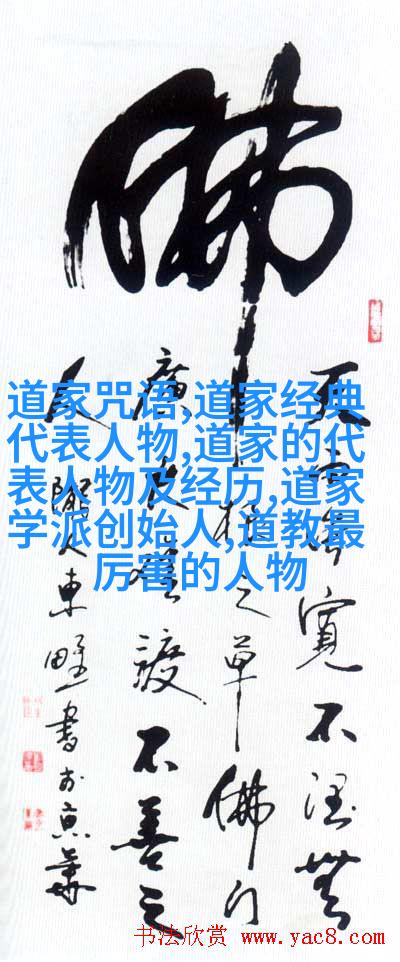 佛
天雨雖寬不潤無
根之草佛门
廣難渡不善之
人 隴人東野書於京華
道家咒语,道家经典
代表人物,道家的代
表人物及经历,道家
学派创始人,道教最
厉害的人物
书法欣赏 www.yac8.com